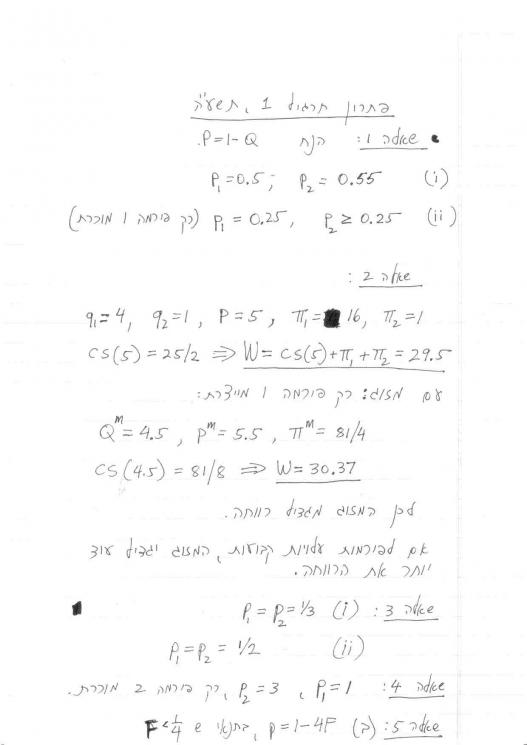 פתרון תרגיל 1, תשע"ה
שאלה 1: הנח P=1-Q.
(i) P₁=0.5; P₂=0.55
(ii) P₁=0.25, P₂≥0.25 (רק פירמה 1 מוכרת)
שאלה 2:
q₁=4, q₂=1, P=5, π₁=16, π₂=1
CS(5)=25/2 ⇒ W=CS(5)+π₁+π₂=29.5
עם מזוג: רק פירמה 1 מייצרת:
Qᵐ=4.5, pᵐ=5.5, πᵐ=81/4
CS(4.5)=81/8 ⇒ W=30.37
לכן המזוג מגדיל רווחה.
אם לפירמות עלויות קבועות, המזוג יגדיל עוד
יותר את הרווחה.
שאלה 3: (i) P₁=P₂=1/3
(ii) P₁=P₂=1/2
שאלה 4: P₁=1, P₂=3, רק פירמה 2 מוכרת.
שאלה 5: (ב) p=1-4F, בתנאי ש F<1/4